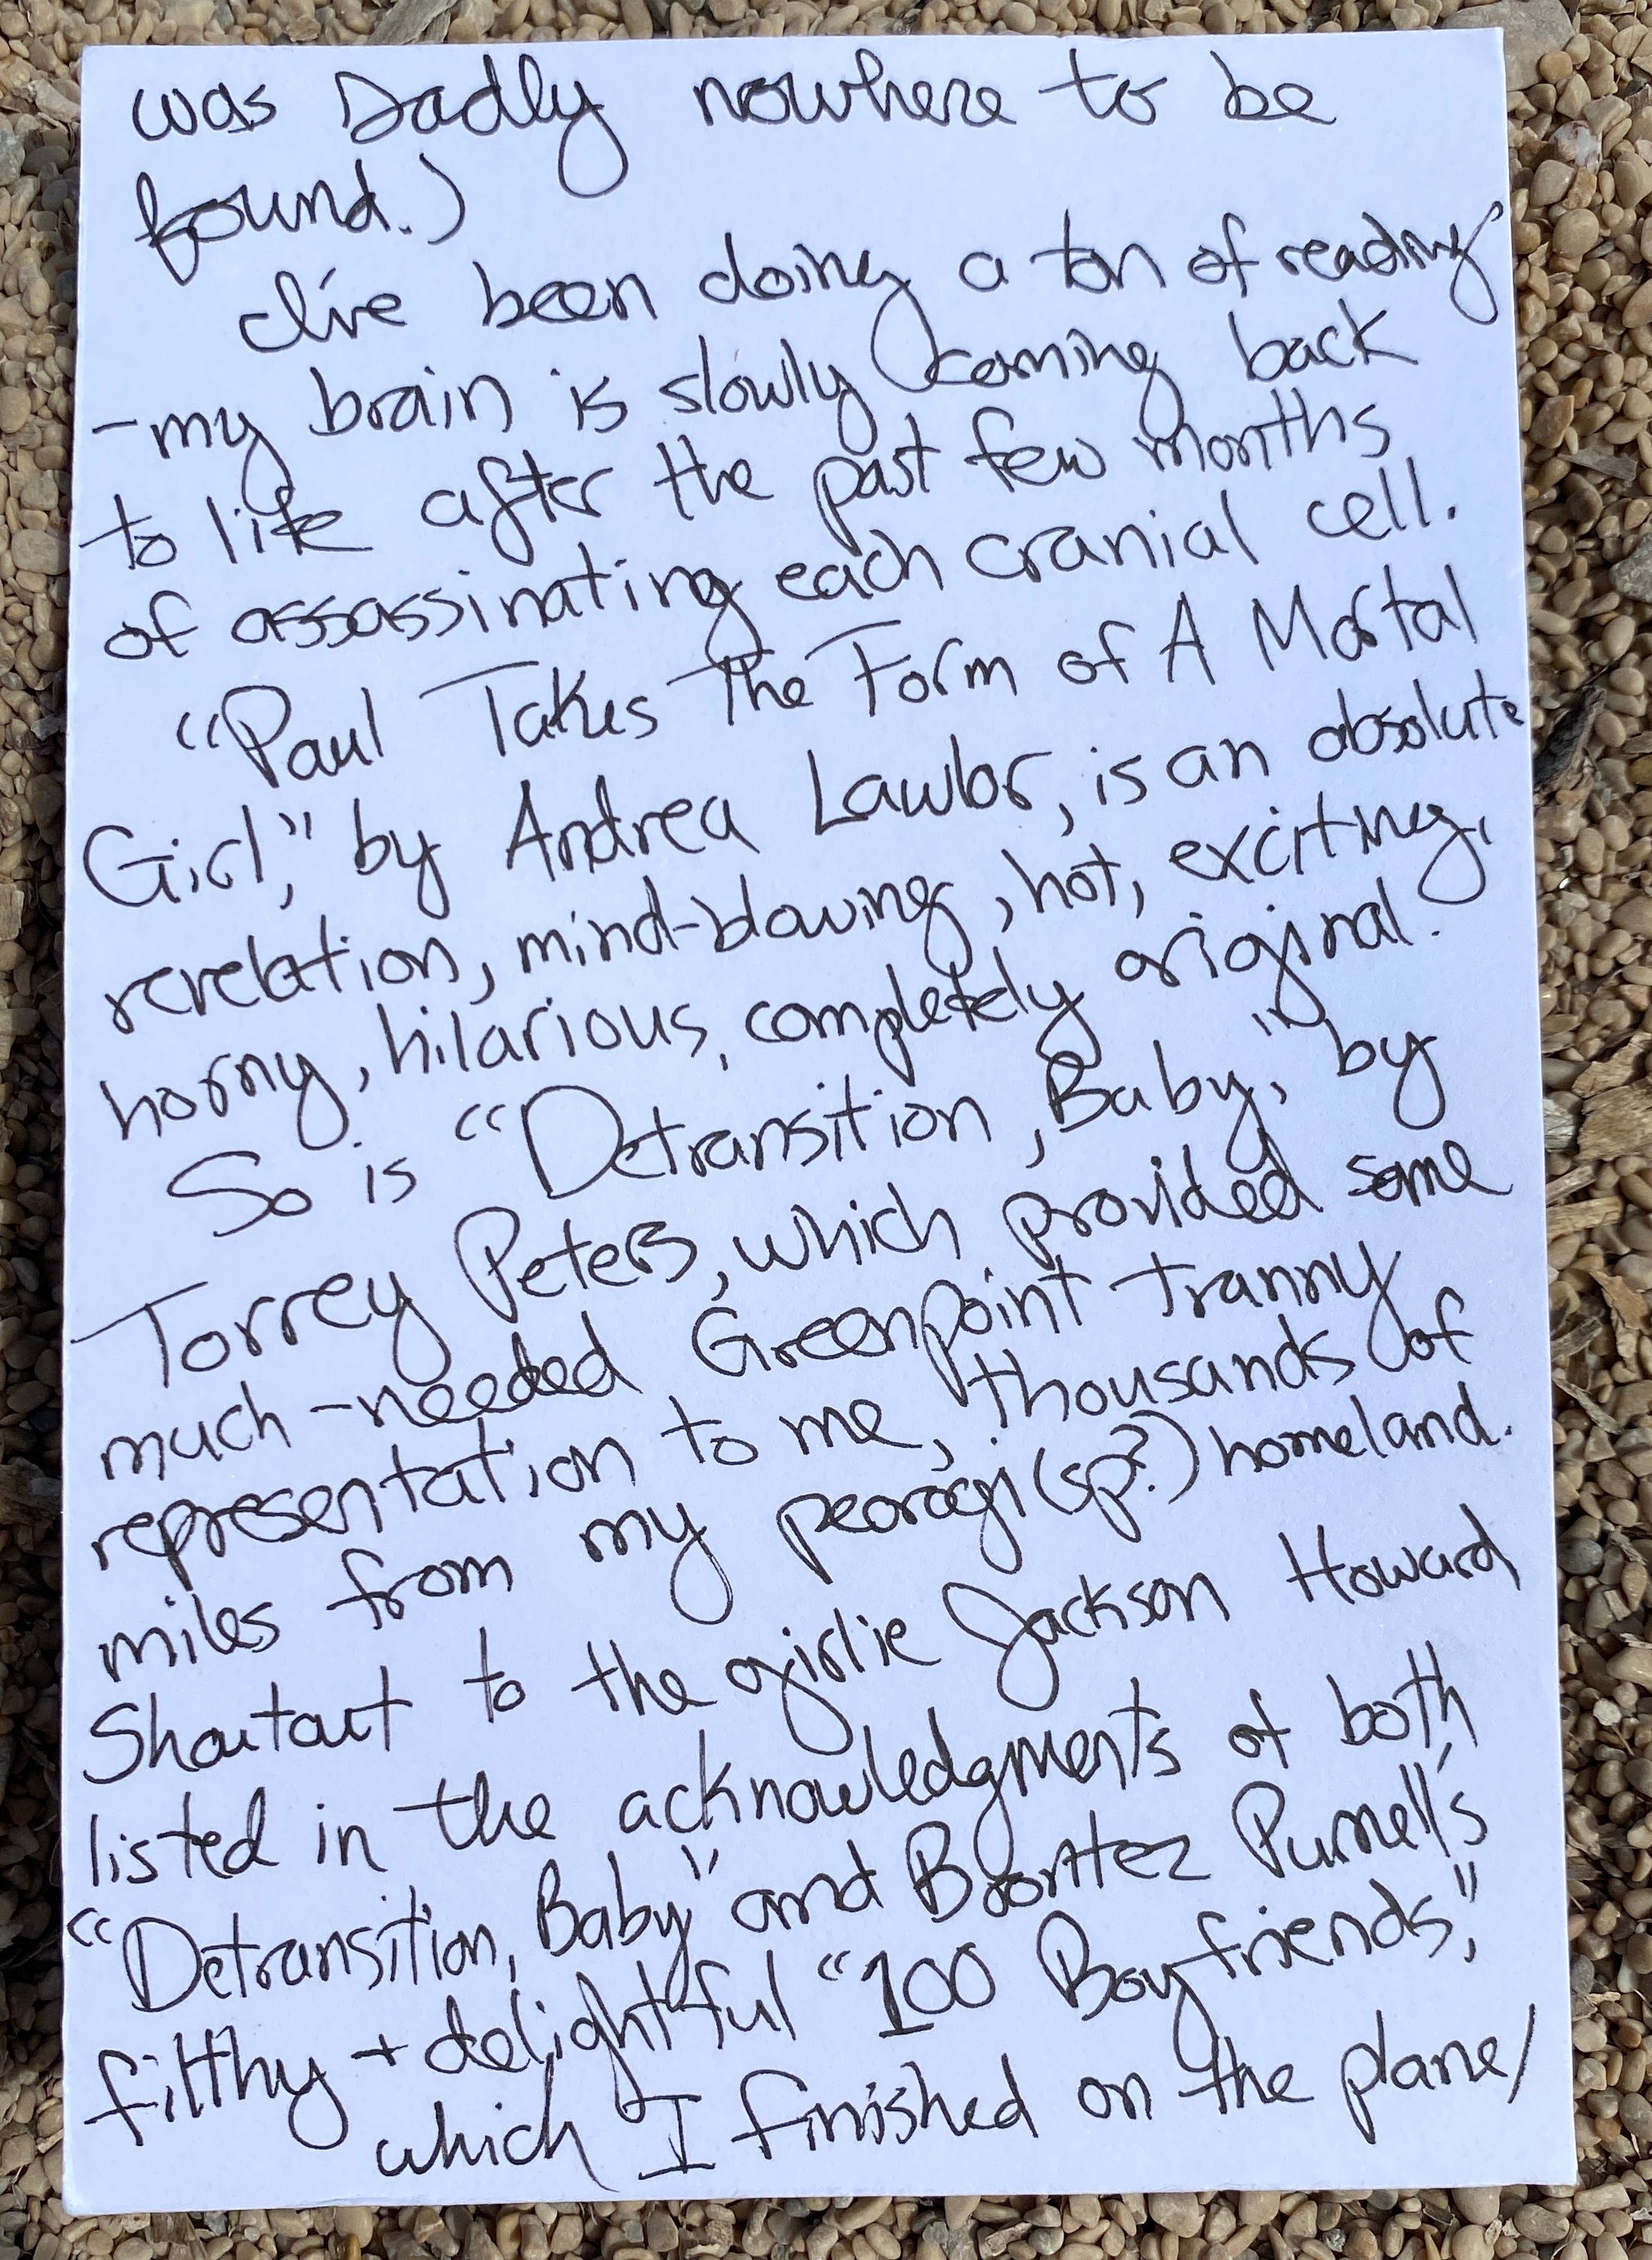 was sadly nowhere to be
found.)
I've been doing a ton of reading
- my brain is slowly coming back
to life after the past few months
of assassinating each cranial cell.
"Paul Takes The Form of A Mortal
Girl," by Andrea Lawlor, is an absolute
revelation, mind-blowing, hot, exciting,
horny, hilarious, completely original.
So is "Detransition, Baby," by
Torrey Peters, which provided some
much-needed Greenpoint tranny
representation to me, thousands of
miles from my peorogi (sp?) homeland.
Shoutout to the girlie Jackson Howard
listed in the acknowledgments of both
"Detransition, Baby" and Brontez Purnell's
filthy + delightful "100 Boyfriends,"
which I finished on the plane/